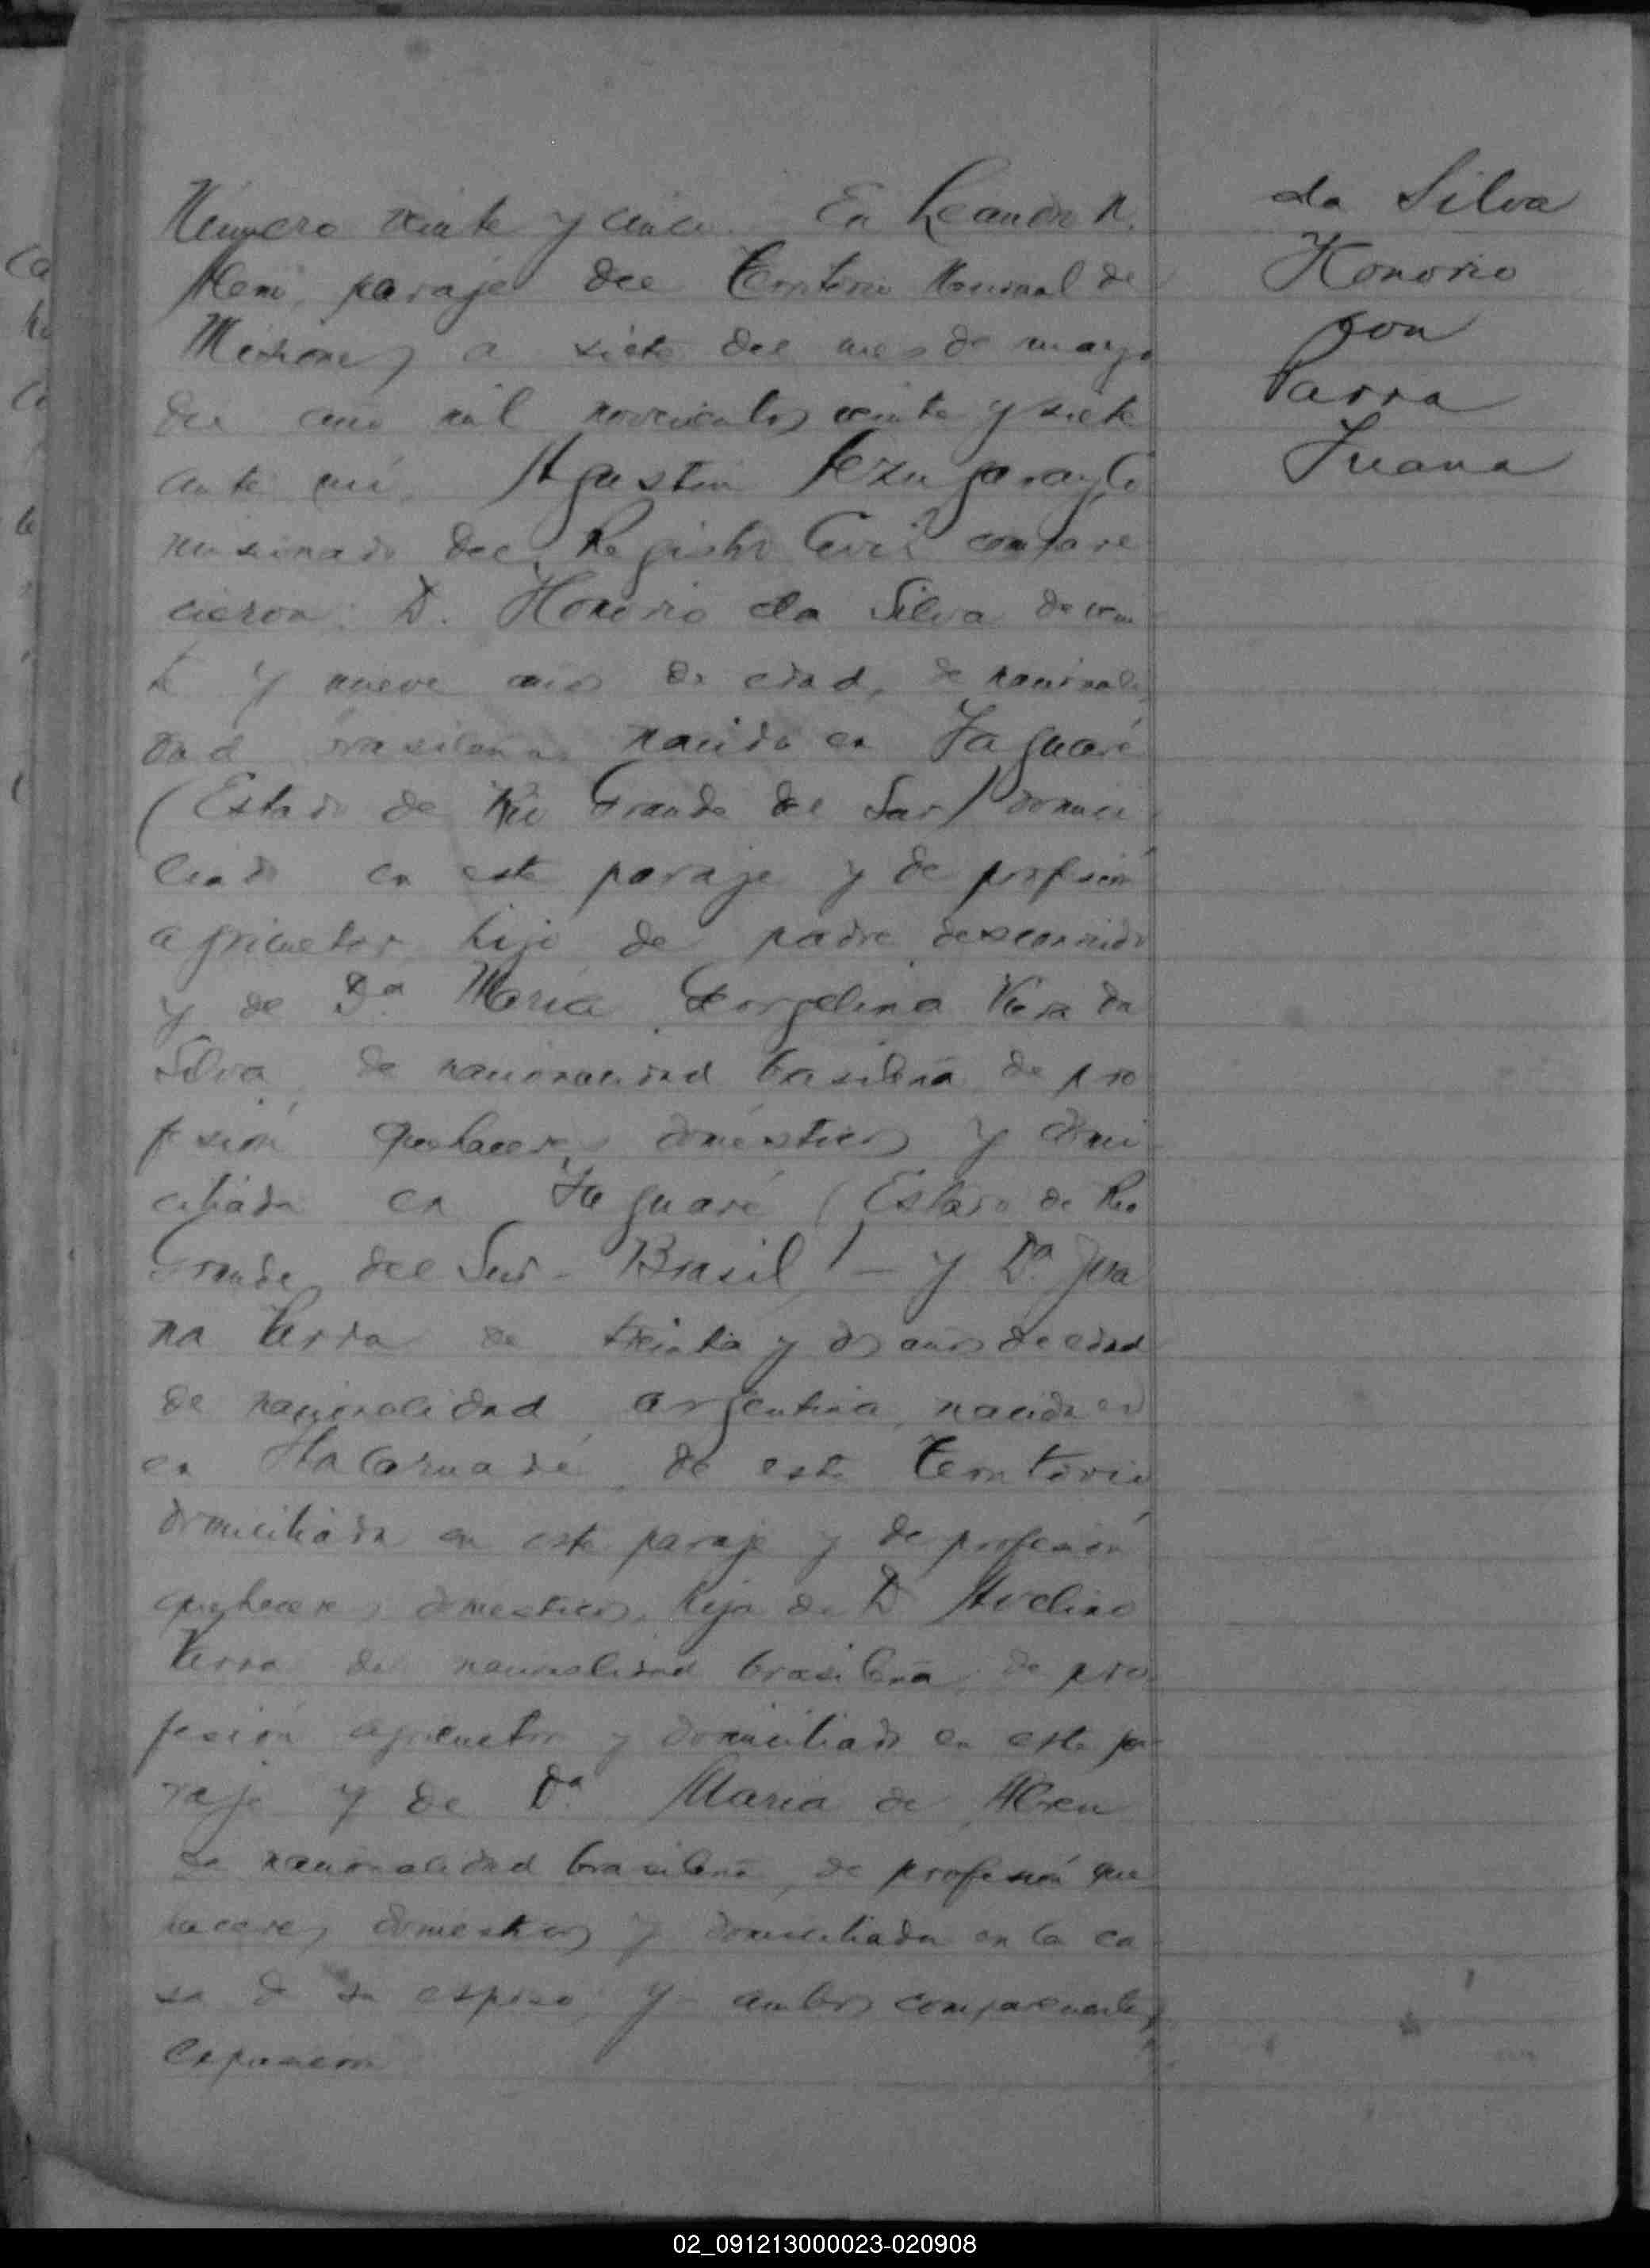 Número veinte y cinco. En Leandro N.
Alem, paraje del Territorio Nacional de
Misiones, a siete del mes de mayo
del año mil novecientos veinte y siete
ante mí, Agustín
misionado del Registro Civil compare
cieron: D. Honorio da Silva de vein
te y nueve años de edad, de nacionali
dad brasileña nacido en Jaguarí
(Estado de Río Grande del Sur) domici
liado en este paraje y de profesión
agricultor hijo de padre desconocido
y de Da. María Dorgelina da
Silva, de nacionalidad brasileña de pro
fesión quehaceres domésticos y domi
ciliada en Jaguarí (Estado de Río
Grande del Sur - Brasil) - y Da. Jua
na Parra de treinta y dos años de edad
de nacionalidad argentina, nacida en
en de este Territorio
domiciliada en este paraje y de profesión
quehaceres domésticos, hija de D. Avelino
Parra de nacionalidad brasileña, de pro
fesión agricultor y domiciliado en este pa
raje y de Da. María de Abreu
de nacionalidad brasileña, de profesión que
haceres domésticos y domiciliada en la ca
sa de su esposo, y ambos comparecientes
expusieron
da Silva
Honorio
con
Parra
Juana
02_091213000023-020908